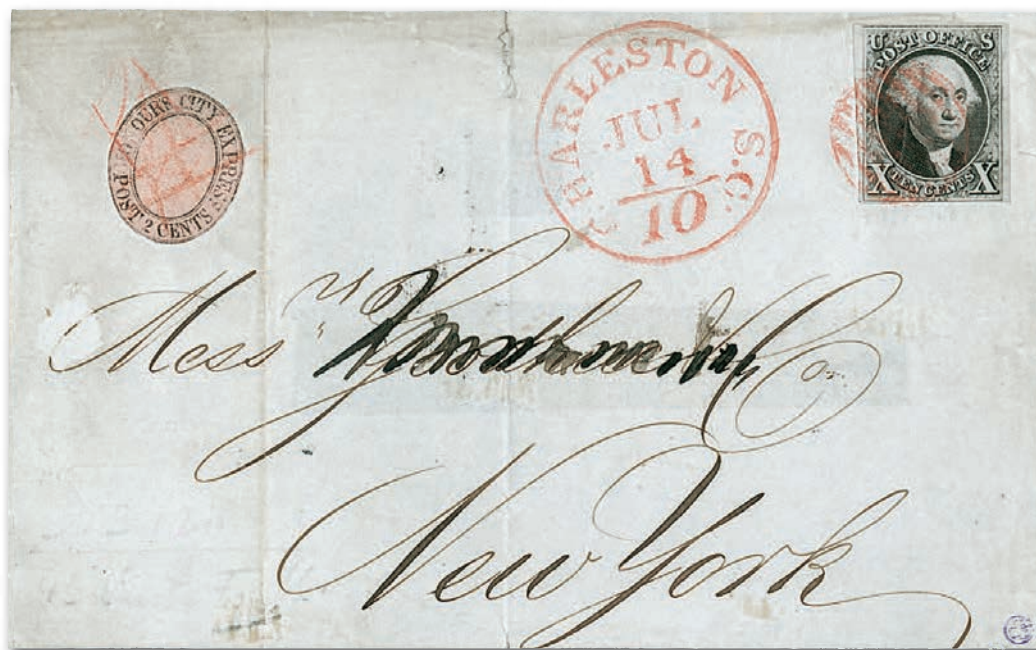 HONOUR'S CITY EXPRESS
POST 2 CENTS
CHARLESTON S.C.
JUL
14
10
U S
POST OFFICE
X TEN CENTS X
Mess
New York